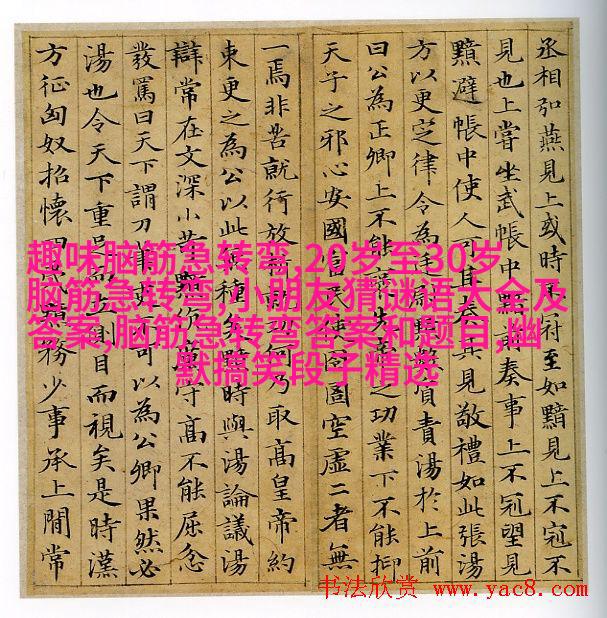 丞相弘燕見上或時不冠至如黯見上不冠不
見也上嘗坐武帳中黯前奏事上不冠望見
黯避帳中使人可其奏其見敬禮如此張湯
方以更定律令為廷黯質責湯於上前
曰公為正卿上不能先之功業下不能抑
天子之邪心安國富民使囹圄空虛二者無
一焉非苦就行放何乃取高皇帝約
束更之為公以此種矣黯時與湯論議湯
辯常在文深小苛黯伉守高不能屈忿
發罵曰天下謂刀筆不可以為公卿果然必
湯也令天下重足立側目而視矣是時漢
方征匈奴招懷四夷黯務少事承上閒常
趣味脑筋急转弯,20岁至30岁
脑筋急转弯,小朋友猜谜语大全及
答案,脑筋急转弯答案和题目,幽
默搞笑段子精选
书法欣赏 www.yac8.com